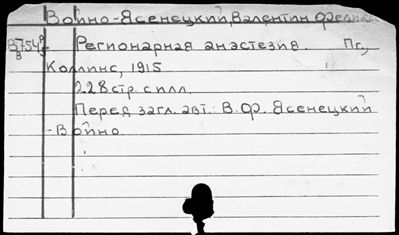 Войно-Ясенецкий, Валентин Феликс
Регионарная анэстезия. Пг.,
Коллинс, 1915
228 стр. с илл.
Перед загл. авт.: В. Ф. Ясенецкий
-Войно.